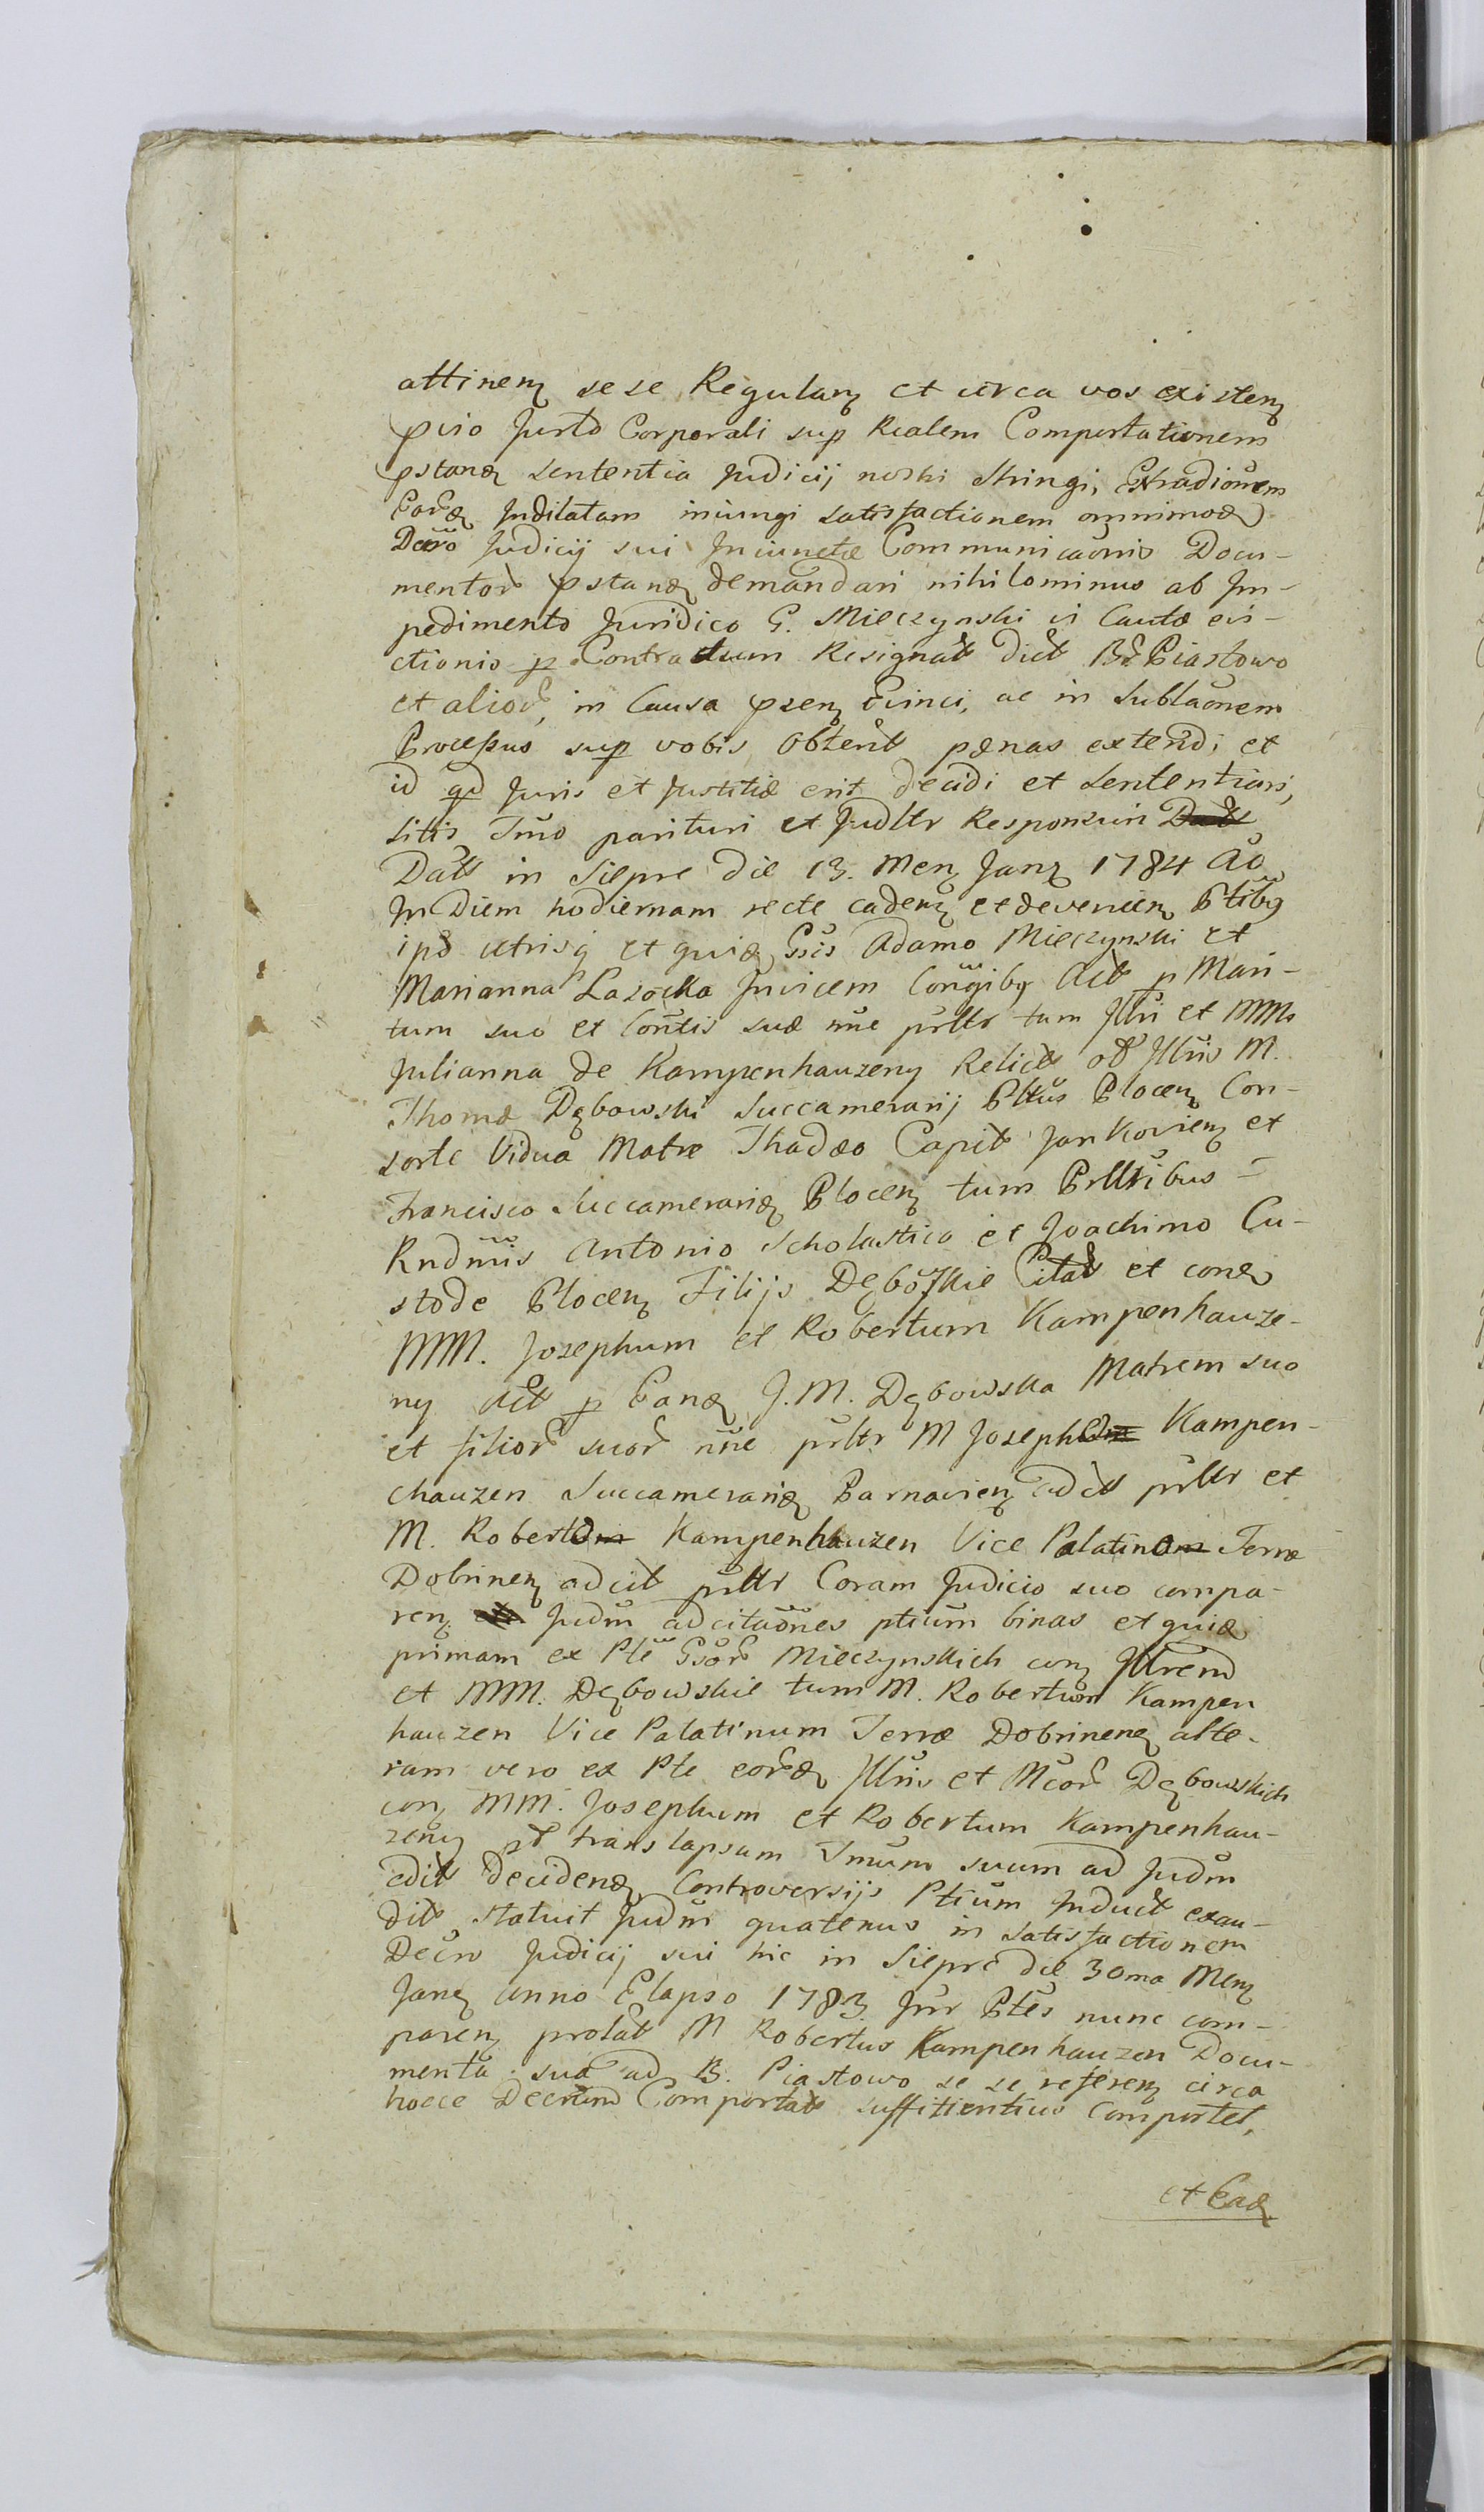 attinen sese Regulan et circa vos existen
pvio Jurto Corporali sup Realem Comportationem
pstand sententia Judicij nostri stringi, Extradionem
Eord Indilatam iniungi satisfactionem omnimod
Decro Judicij sui Iniunctæ Communicaonis Docu-
mentor pstand demandari nihilominus ab Im-
pedimento Juridico G. Mieczynski vi Cautæ evi-
ctionis p Contractum Resignat dict Bd Piastowo
et alior, in Causa psen Evinci, ac in Sublaonem
Processus sup vobis obtent pænas extendi et
id qd Juris et Justitiæ erit decidi et Sententiari,
sitis Tmo parituri et Judltr Responsuri
Datt in Sieprc die 13. Men Jan 1784 Ao
In Diem hodiernam recte caden et devenien Ptibq
ips utrisq et quid Gsis Adamo Mieczynski et
Marianna Lasocka Invicem Congibq Act p Mari-
tum suo et Contis suæ nne prltr tum Jllri et MMs
Julianna de Kampenhauzeny Relict ol Jllris M.
Thomæ Dębowski Succamerarij Pltus Plocen Con-
sorte Vidua Matre Thadæo Capit Jankovien et
Francisco Succamerarid Plocen tum Prltribus
Rndmis Antonio Scholastico et Joachimo Cu-
stode Plocen Filijs Dębofskie Citat et cond
MM. Josephum et Robertum Kampenhauze-
ny Act p Eand J. M. Dębowska Matrem suo
et filior suor nne prltr M Joseph Kampen-
chauzen Succamerarid Parnavien adcit prltr et
M. Roberto Kampenhauzen Vice Palatino Terræ
Dobrinen adcit prltr Coram Judicio suo compa-
ren Judm adcitaones ptium binas et quid
primam ex Pte Gsor Mieczynskich con Jllrem
et MM. Dębowskie tum M. Robertum Kampen
hauzen Vice Palatinum Terræ Dobrinen alte-
ram vero ex Pte eord Jllris et Mcor Dębowskich
con MM. Josephum et Robertum Kampenhau-
zeny pt translapsum Tmum suum ad Judm
adit Decidend Controversijs Ptium Induct exau-
dit statuit Judm quatenus in satisfactionem
Decro Judicij sui hic in Sieprc die 30ma Men
Jan anno Elapso 1783 Inr Ptes nunc com-
paren prolat M Robertus Kampenhauzen Docu-
menta sua ad B. Piastowo se se referen circa
hocce Decretum Comportat suffitientius Comportet,
et Ead